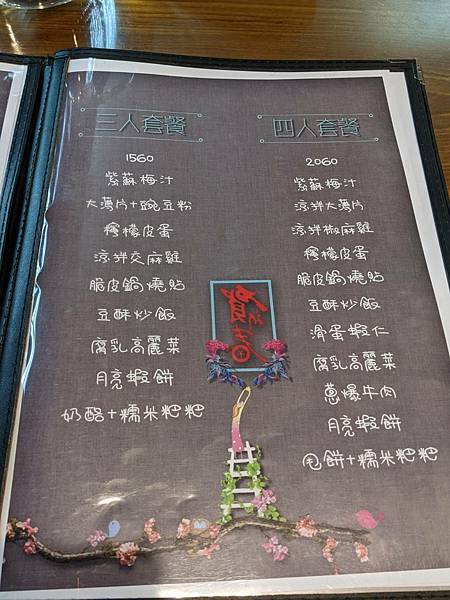 三人套餐
1560
紫蘇梅汁
大薄片+豌豆粉
檸檬皮蛋
涼拌交麻雞
脆皮鍋燒貼
豆酥炒飯
腐乳高麗菜
月亮蝦餅
奶酪+糯米粑粑
四人套餐
2060
紫蘇梅汁
涼拌大薄片
涼拌椒麻雞
檸檬皮蛋
脆皮鍋燒貼
豆酥炒飯
滑蛋蝦仁
腐乳高麗菜
蔥爆牛肉
月亮蝦餅
甩餅+糯米粑粑